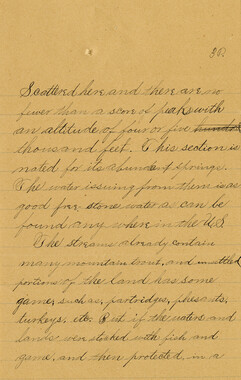 Scattered here and there are no
fewer than a score of peaks with
an altitude of four or five hundred
thousand feet. This section is
noted for its abundent springs.
The water issuing from there is as
good free stone water as can be
found any where in the U.S.
The streams already contain
many mountain trout, and unsettled
portions of the land has some
game, such as, partridges, phesants,
turkeys, etc. But if the waters and
lands were stocked with fish and
game, and then protected, in a